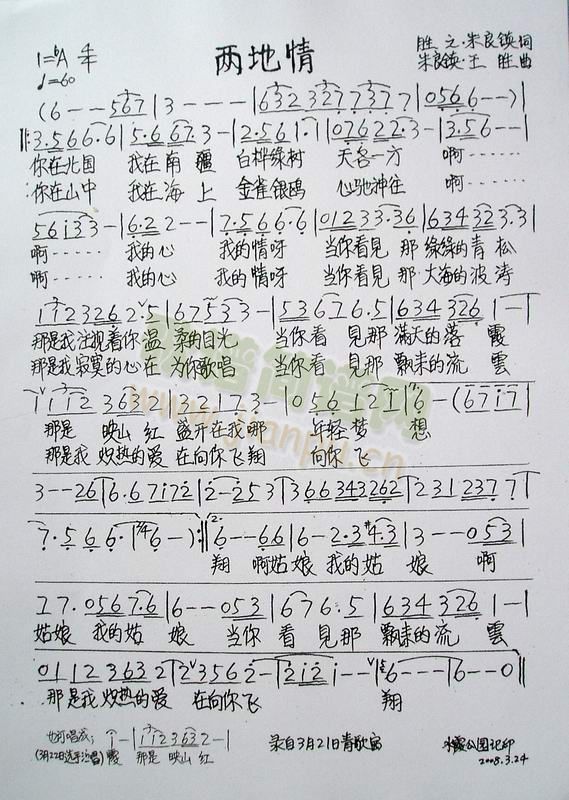 两地情
1=ᵇA 4/4
♩=60
胜 之·朱良镇 词
朱良镇·王 胜 曲
(6 - - 567 | 3 - - - | 632 327 737 7 | 056 6 - - ) |
3.566 6.6 | 5.667 3 - | 2.56 1.1 | 07622 2.3 - | 3.56 - - |
你在北国 我在南疆 白桦绿树 天各一方 啊……
你在山中 我在海上 金雀银鸥 心驰神往 啊……
56i33 - | 6.22 - - | 7.566 6.6 | 01233.36 | 634323.3 |
啊…… 我的心 我的情呀 当你看見 那 绿绿的青松
啊…… 我的心 我的情呀 当你看見 那 大海的波涛
1123262.5 | 67533 - | 53676.5 | 634326 | 1 - - |
那是我注视着你温柔的目光 当你看見那满天的落霞
那是我寂寞的心在为你歌唱 当你看見那飘来的流雲
那是 映山红 盛开在我哪 年轻梦 想
那是我炽热的爱 在向你飞翔 向你飞
3 - - 26 | 6.67i72 | 2 - 253 | 366343262 | 231237 7 |
7.566 6. | 6 - ) :|| 6 - - 66 | 6 - 2.3#4.3 | 3 - - 053 |
翔 啊姑娘 我的姑 娘 啊
17.0567.6 | 6 - - 053 | 6 76.5 | 634326 | 1 - - |
姑娘 我的姑 娘 当你看見那 飘来的流雲
0112363 2 | 2 3562 - | 2i2i - - | 6 - - - | 6 - - 0 ||
那是我炽热的爱 在向你飞 翔
也可唱成: 1 - | 11236322 - |
(3月22日选手演唱) 霞 那是 映山红
录自3月21日青歌赛
2008.3.24